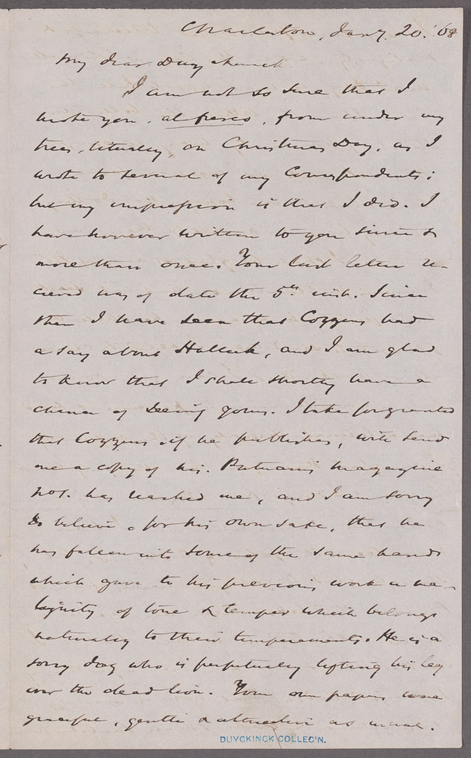 Charleston, Jany. 20. '68
My dear Duyckinck
I am not so sure that I
wrote you, al fresco, from under my
trees, literally, on Christmas Day, as I
wrote to several of my Correspondents;
but my impression is that I did. I
have however written to you since &
more than once. Your last letter re-
ceived was of date the 5th inst. Since
then I have seen that Cozzens had
a say about Halleck, and I am glad
to know that I shall shortly have a
chance of seeing yours. I take for granted
that Cozzens, if he publishes, will send
me a copy of his. Putnam's magazine
No1. has reached me, and I am sorry
to believe, for his own sake, that he
has fallen into some of the same hands
which gave to his previous work a ma-
lignity of tone & temper which belongs
naturally to their temperaments. He is a
sorry dog who is perpetually lifting his leg
over the dead lion. Your own papers were
graceful, gentle & attractive as usual.
DUYCKINCK COLLEC'N.